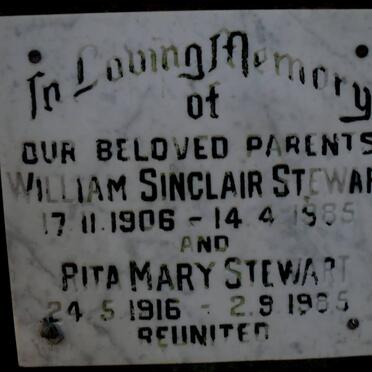 In Loving Memory
of
OUR BELOVED PARENTS
WILLIAM SINCLAIR STEWAR
17.11.1906 - 14.4.1985
AND
RITA MARY STEWART
24.5.1916 - 2.9.1985
REUNITED